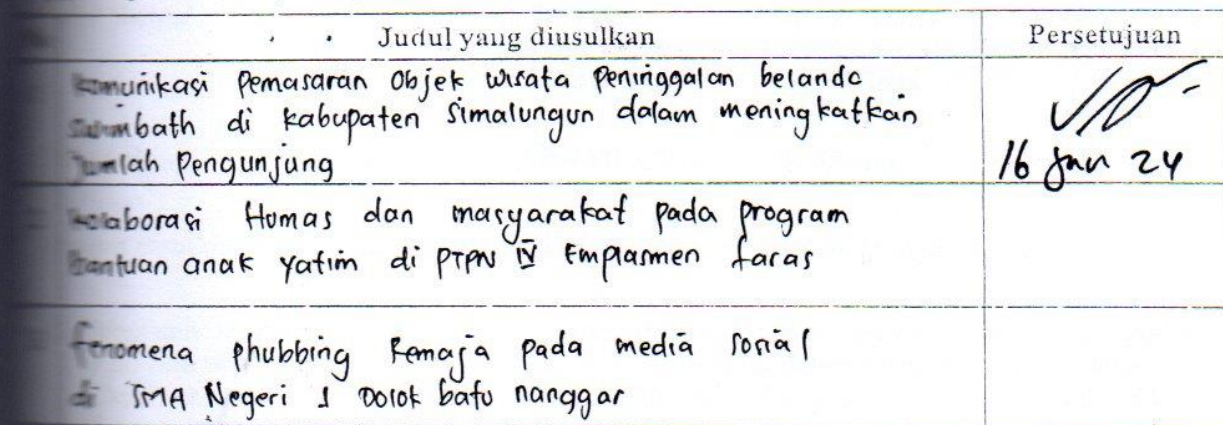 Judul yang diusulkan
Persetujuan
Komunikasi Pemasaran Objek wisata Peninggalan belanda
bath di Kabupaten Simalungun dalam meningkatkan
Jumlah Pengunjung
16 Jan 24
Kolaborasi Humas dan masyarakat pada program
Bantuan anak yatim di PTPN IV Emplasmen faras
fenomena phubbing Remaja pada media sosial
di SMA Negeri 1 Dolok batu nanggar